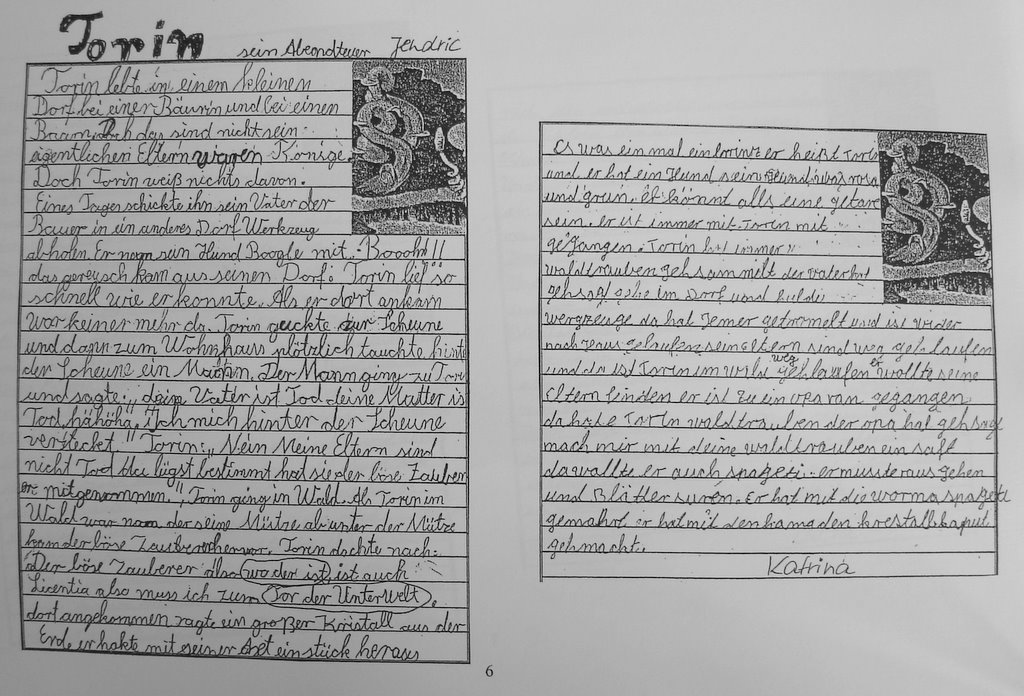 Torin sein Abendteuer Jendric
Torin lebte in einem kleinen
Dorf bei einer Bäurin und bei einen
Bauern. Doch das sind nicht sein
eigentlichen Eltern waren Könige.
Doch Torin weiß nichts davon.
Eines Tages schickte ihn sein Vater der
Bauer in ein anderes Dorf Werkzeug
abholen Er nam sein Hund Boogle mit. Boooh!!!
das gereusch kam aus seinen Dorf. Torin lief so
schnell wie er konnte. Als er dort ankam
war keiner mehr da. Torin guckte zur Scheune
und dann zum Wohnhaus plötzlich tauchte hinter
der Scheune ein Mann. Der Mann ging zu Torin
und sagte: „dein Vater ist Tod deine Mutter ist
Tod hähöhä" „Ich mich hinter der Scheune
versteckt" Torin: „Nein Meine Eltern sind
nicht Tod du lügst bestimmt hat sie der böse Zauber-
er mitgenommen." Torin ging in Wald. Als Torin im
Wald war nam der seine Mütze ab unter der Mütze
kam der böse Zauberer hervor. Torin dachte nach:
Der böse Zauberer also wo der ist, ist auch
Licentia also muss ich zum Tor der Unterwelt.
dort angekommen ragte ein großer Kristall aus der
Erde er hakte mit seiner Axt ein stück heraus
Es was ein mal ein brintz er heißt Torin
und er hat ein Hund sein Hund war rosa
und grün. Er hörnt alls eine getare
sein. er ist immer mit Torin mit
gegangen. Torin hat immer
waldtrauben gehsammilt der vater hat
gehsagt gehe im Dorf und hul di
wergzeuge da hat Jemer getromelt und ist wider
nach Haus gelaufen sein eltern sind weg gehlaufen
und da ist Torin im wald weg gehlaufen er wollte seine
Eltern finden er ist zu ein opa ran gegangen
da hate Torin waldtrauben der opa hat gehsagt
mach mir mit deine waldtrauben ein saft
da wallte er auch spageti er musste raus gehen
und Blätter suren. Er hat mit die worma spageti
gemahrt. er hat mit den hama den krestall kaput
gehmacht.
Katrina
6